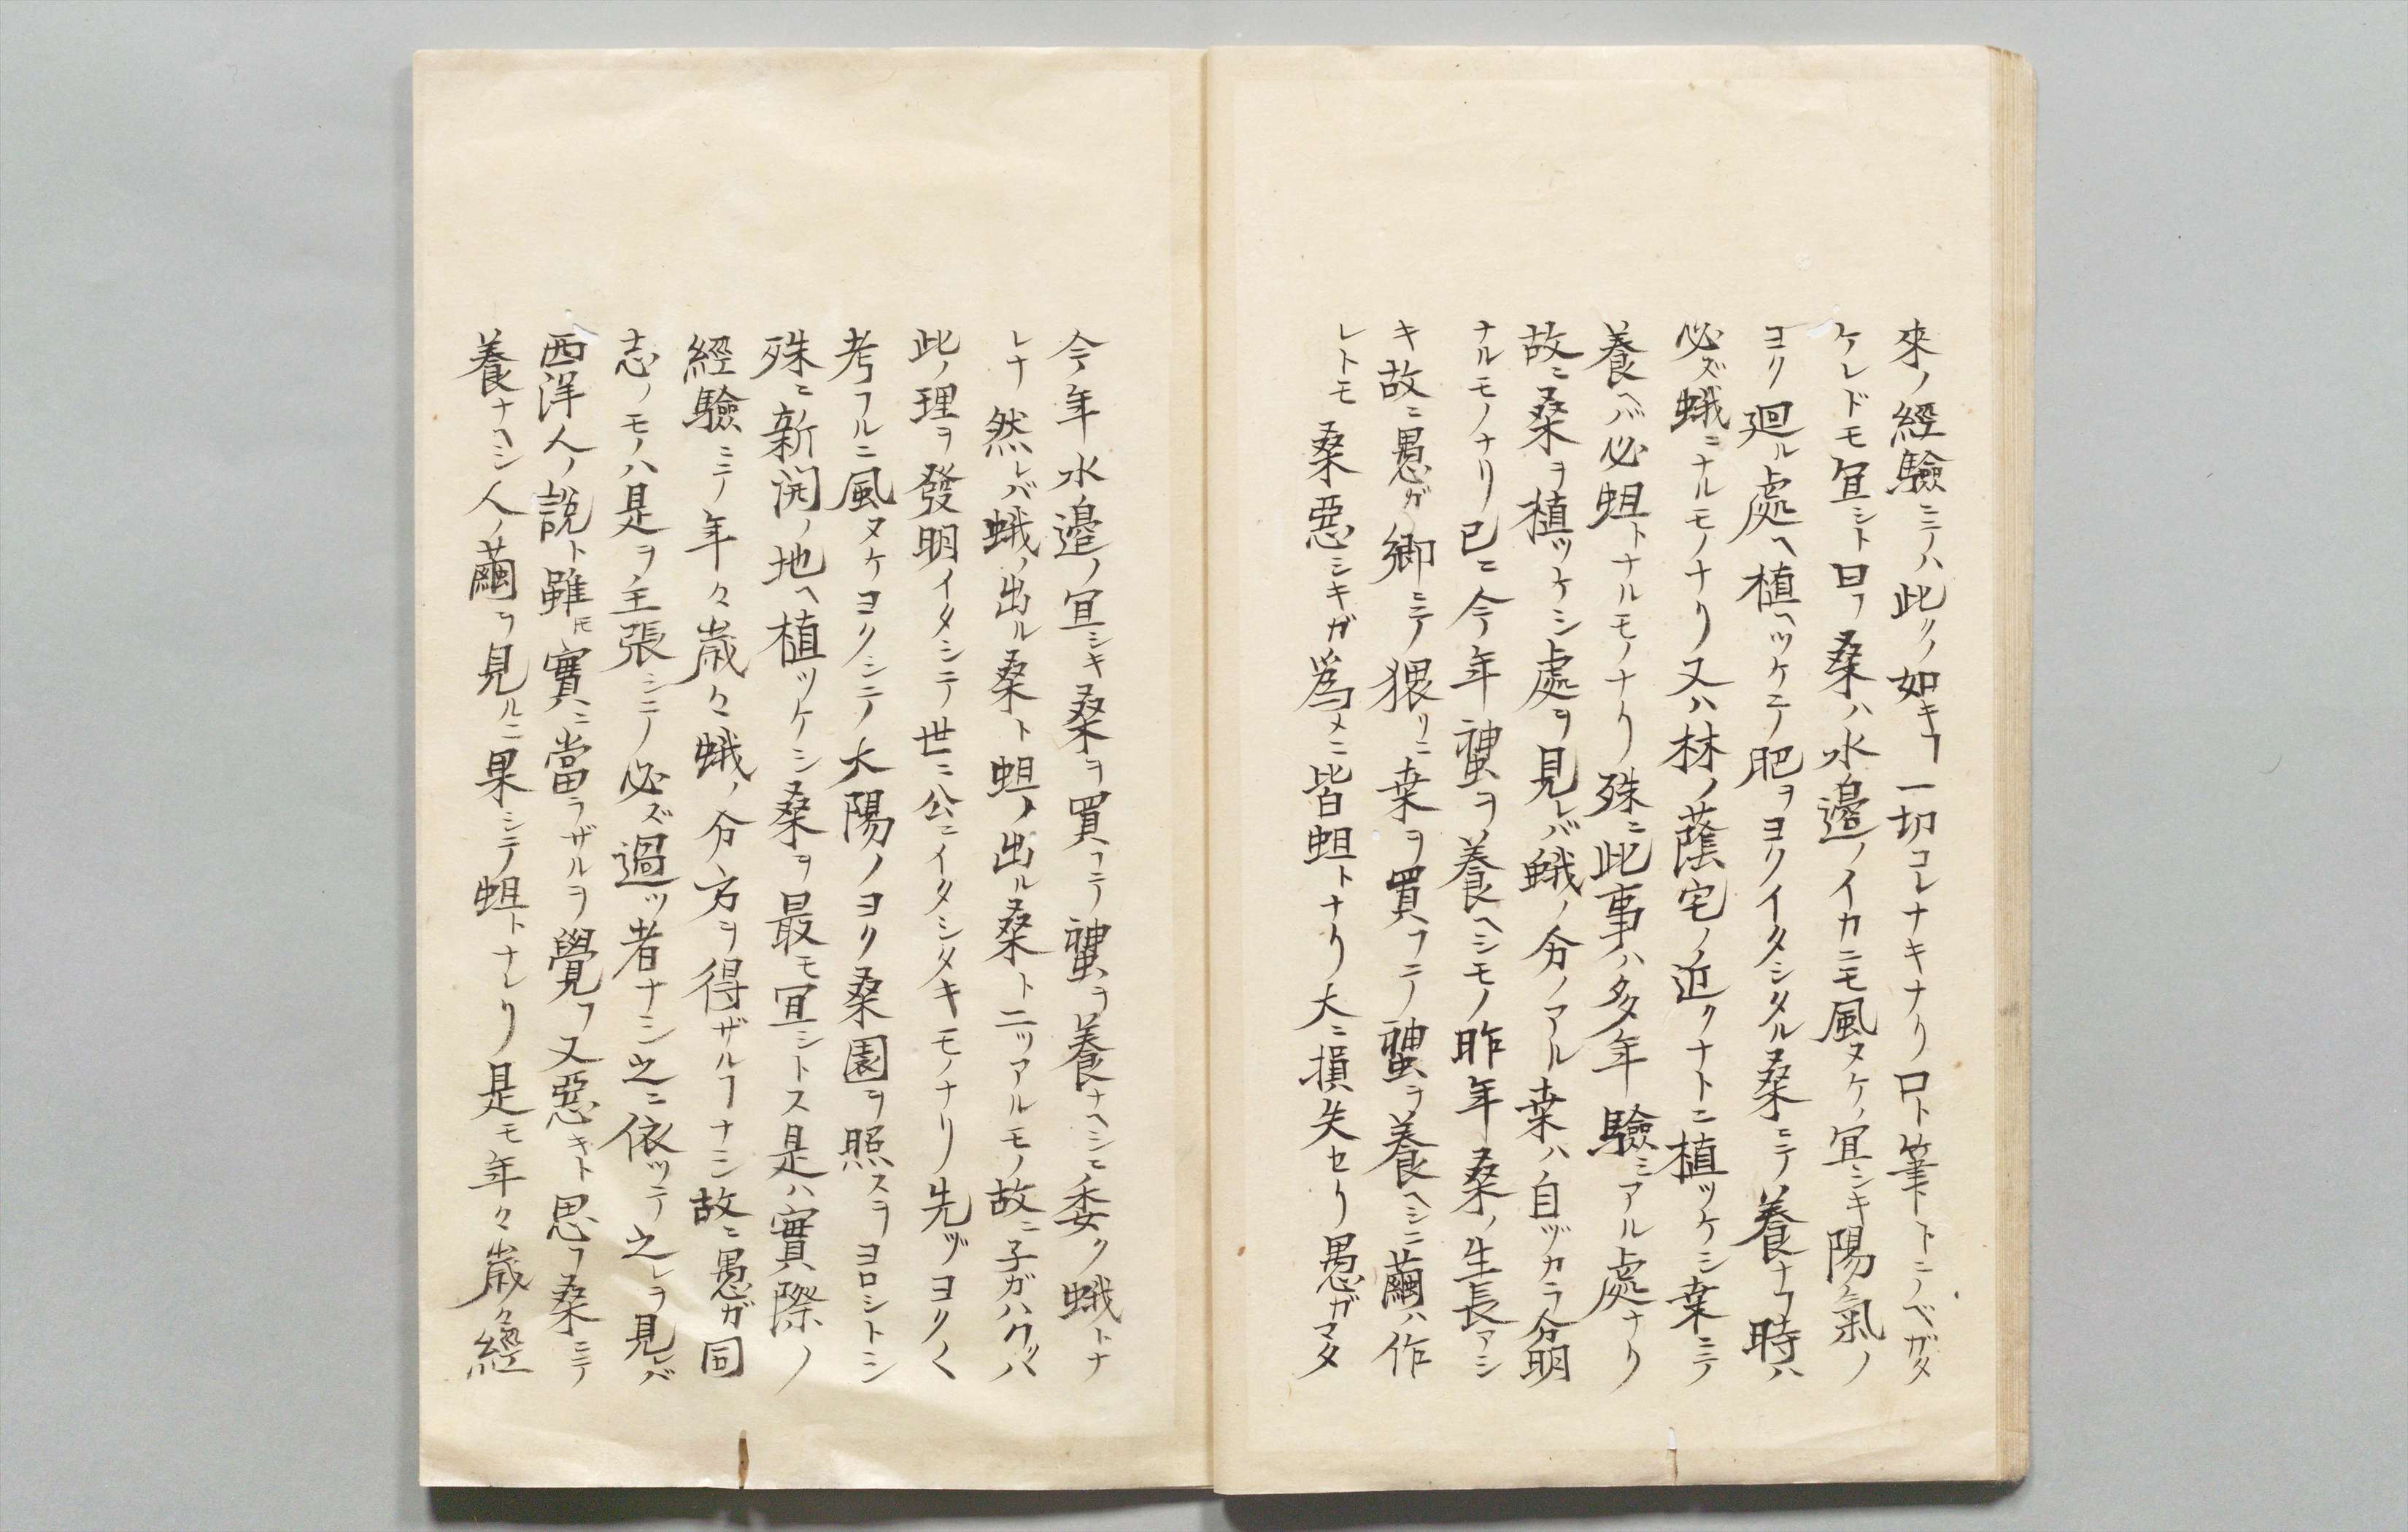 來ノ經驗ニテハ此クノ如キヿ一切コレナキナリ口ト筆トニノベガタ
ケレドモ宜シト曰フ桑ハ水邉ノイカニモ風ヌケノ宜シキ陽氣ノ
ヨク廻ル處ヘ植ヘツケテ肥ヲヨクイタシタル桑ニテ養ナフ時ハ
必ズ蛾ニナルモノナリ又ハ林ノ蔭宅ノ近クナトニ植ツケシ桒ニテ
養ヘバ必蛆トナルモノナリ殊ニ此事ハ多年驗ミアル處ナリ
故ニ桑ヲ植ツケシ處ヲ見レバ蛾ノ分ノアル桒ハ自ヅカラ分明
ナルモノナリ已ニ今年蚕ヲ養ヘシモノ昨年桑ノ生長アシ
キ故ニ愚ガ郷ニテ猥リニ桒ヲ買フテ蚕ヲ養ヘシニ繭ハ作
レトモ桑惡シキガ爲メニ皆蛆トナリ大ニ損失セリ愚ガマタ
今年水邉ノ宜シキ桑ヲ買フテ蚕ヲ養ナヘシニ委ク蛾トナ
レナ然レバ蛾ノ出ル桑ト蛆ノ出ル桑ト二ツアルモノ故ニ子ガハクハ
此ノ理ヲ發明イタシテ世ニ公ニイタシタキモノナリ先ヅヨク〱
考フルニ風ヌケヨクシテ大陽ノヨク桑園ヲ照スヲヨロシトシ
殊ニ新開ノ地ヘ植ツケシ桑ヲ最モ宜シトス是ハ實際ノ
經驗ニテ年々歳々蛾ノ分方ヲ得ザルヿナシ故ニ愚ガ同
志ノモノハ是ヲ主張シテ必ズ過ツ者ナシ之ニ依ツテ之レヲ見レバ
西洋人ノ説ト雖𪜈實ニ當ラザルヲ覺フ又惡キト思フ桑ニテ
養ナヘシ人ノ繭ヲ見ルニ果シテ蛆トナレリ是モ年々歳々經